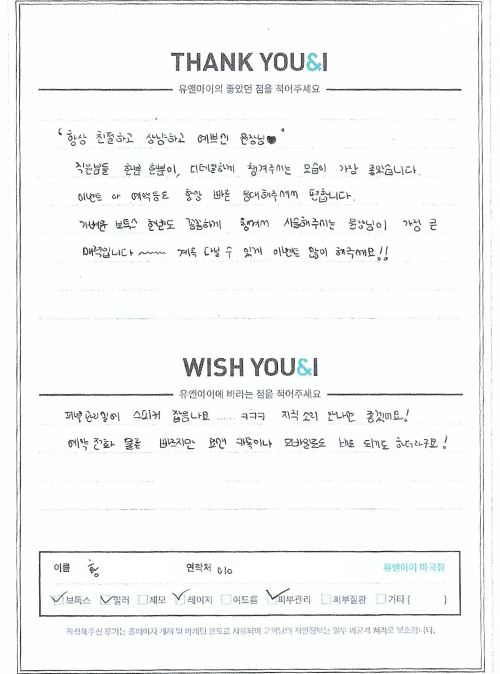 THANK YOU&I
유앤아이의 좋았던 점을 적어주세요
"항상 친절하고 상냥하고 예쁘신 원장님♥"
직원분들 한분 한분이, 디테일하게 챙겨주시는 모습이 가장 좋았습니다.
이벤트 예약등도 항상 빠른 응대해주셔서 편합니다.
가벼운 보톡스 한번도 꼼꼼하게 챙겨서 시술해주시는 원장님이 가장 큰
매력입니다~~~ 계속 다닐 수 있게 이벤트 많이 해주세요!!
WISH YOU&I
유앤아이에 바라는 점을 적어주세요
피부관리실에 스피커 잡음나요 ...... ㅋㅋㅋ 지직 소리 안나면 좋겠어요!
예약 전화 물론 바쁘지만 요샌 카톡이나 모바일로도 바로 되기도 하더라구요!
이름
연락처 010
유앤아이 마곡점
보톡스 필러 제모 레이저 여드름 피부관리 피부질환 기타 ( )
작성해주신 후기는 홈페이지 게재 및 마케팅 용도로 사용되며 고객님의 개인정보는 일부 비공개 처리로 보호됩니다.